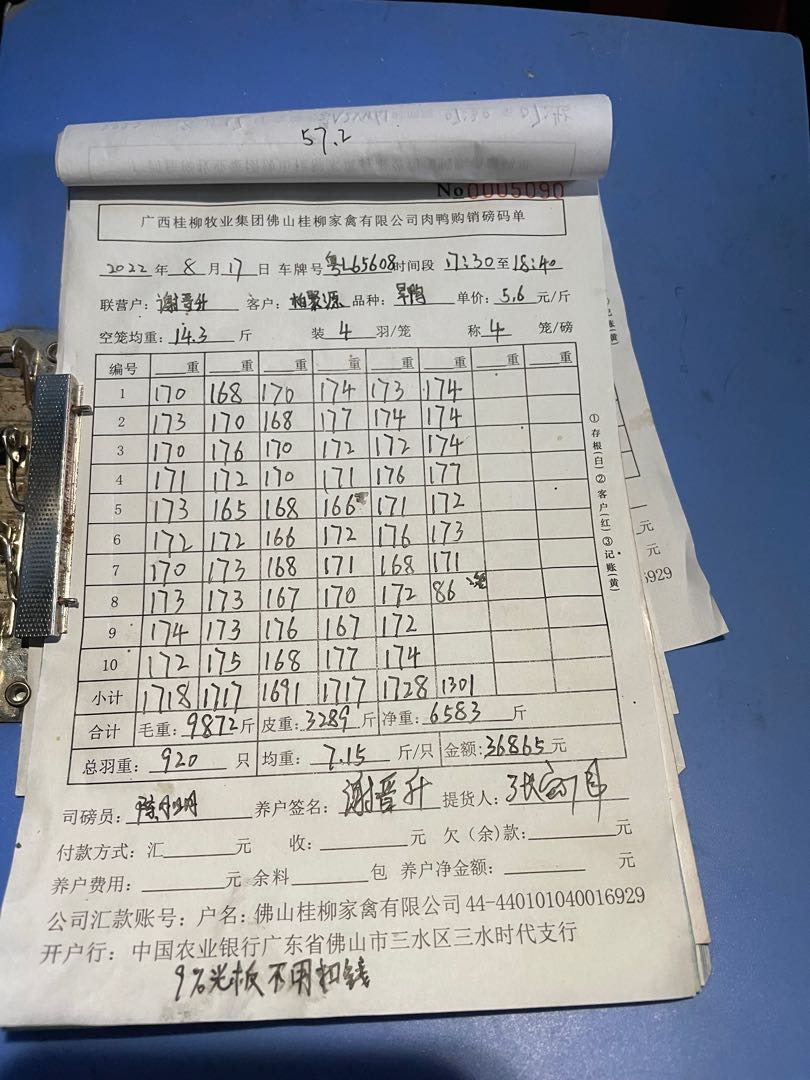 57.2
No 0005090
广西桂柳牧业集团佛山桂柳家禽有限公司肉鸭购销磅码单
2022 年 8 月 17 日 车牌号 粤L65608 时间段 17:30 至 18:40
联营户: 谢晋升 客户: 柏聚源 品种: 旱鸭 单价: 5.6 元/斤
空笼均重: 14.3 斤 装 4 羽/笼 称 4 笼/磅
编号 重 重 重 重 重 重 重 重
1 170 168 170 174 173 174
2 173 170 168 177 174 174
3 170 176 170 172 172 174
4 171 172 170 171 176 177
5 173 165 168 166 171 172
6 172 172 166 172 176 173
7 170 173 168 171 168 171
8 173 173 167 170 172 86
9 174 173 176 167 172
10 172 175 168 177 174
小计 1718 1717 1691 1717 1728 1301
合计 毛重: 9872 斤 皮重: 3289 斤 净重: 6583 斤
总羽重: 920 只 均重: 7.15 斤/只 金额: 36865 元
司磅员: 养户签名: 谢晋升 提货人:
付款方式: 汇 元 收: 元 欠(余)款: 元
养户费用: 元 余料 包 养户净金额: 元
公司汇款账号: 户名: 佛山桂柳家禽有限公司 44-440101040016929
开户行: 中国农业银行广东省佛山市三水区三水时代支行
9%光板不用扣钱
①存根(白)②客户(红)③记账(黄)
记账(黄)
元
元
6929